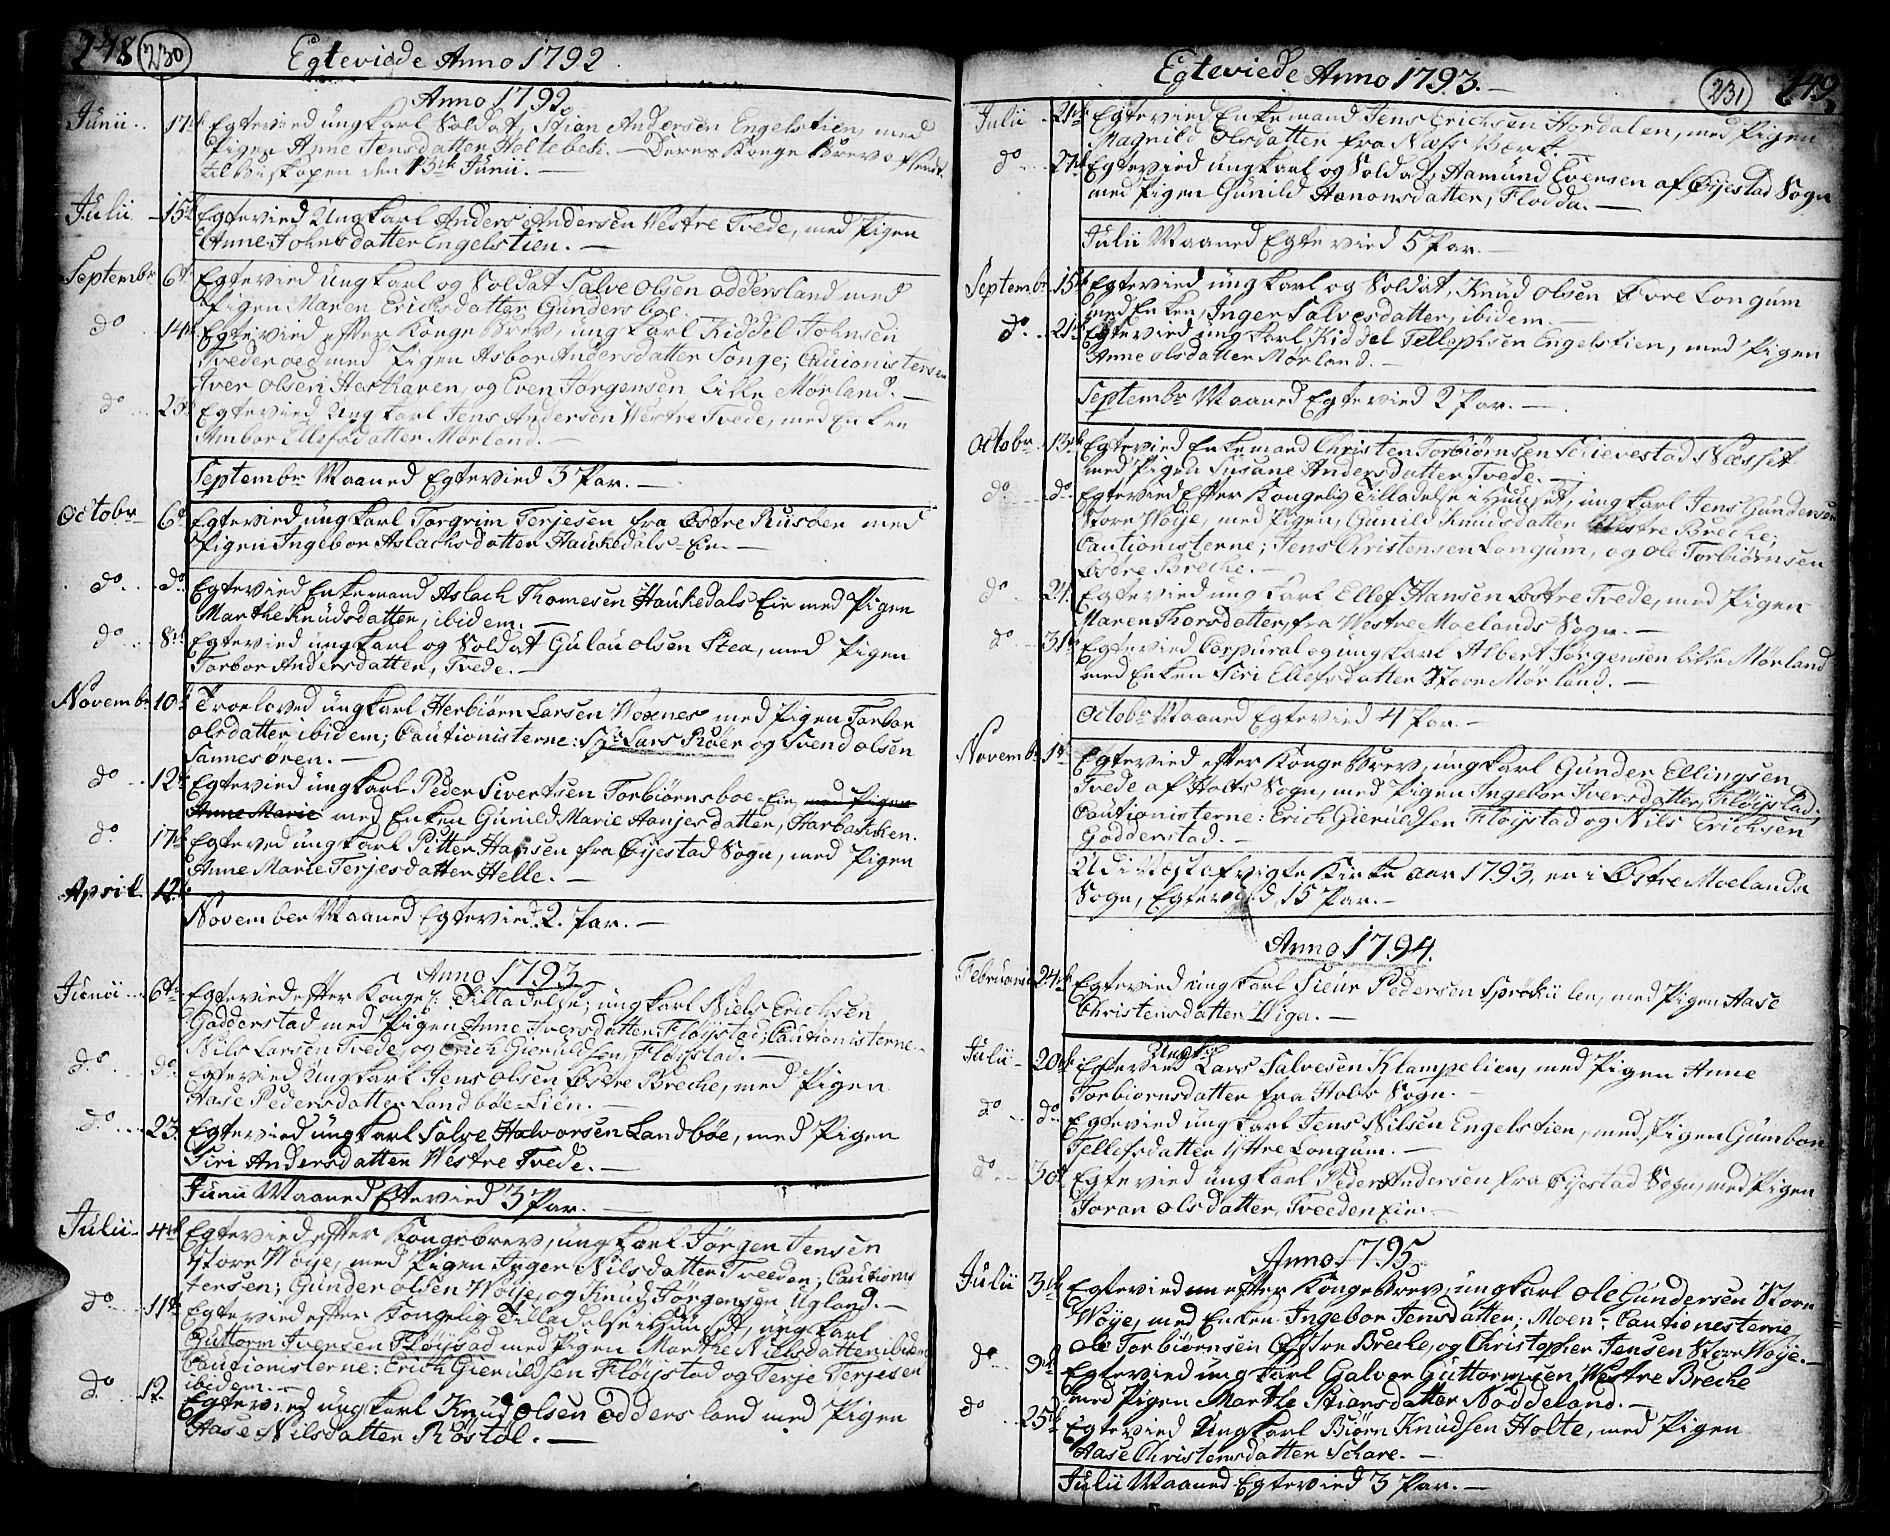 248 230 Egteviede Anno 1792.
Anno 1792
Junii 17de Egtevied ungkarl Soldat, Stian Andersen Engelstien, med
Pigen Anne Jensdatter Holtebek. — Deres Konge Brev afsendt
til Biskopen den 13de Junii. —
Julii 15de Egtevied Ungkarl Anders Andersen Vestre Tvede, med Pigen
Anne Johnsdatter Engelstien. —
Septembr 6te Egtevied ungkarl og Soldat Salve Olsen Oddersland med
Pigen Maren Ericksdatter Gundersboe.
do 14de Egtevied efter Konge Brev, ungkarl Kiddel Johnsen
med Pigen Asbor Andersdatter Songe; Cautionistersen
Iver Olsen Hesthaven, og Even Jørgensen Litle Mørland. —
do 23de Egtevied Ungkarl Jens Andersen Westre Tvede, med Enken
Ambor Ellefsdatter Mørland. —
Septembr Maaned Egtevied 3 Par. —
Octobr 6te Egtevied ungkarl Torgrim Terjesen fra Østre Riisøen med
Pigen Ingebor Aslachsdatter Haukedals-Eie. —
do do Egtevied Enkemand Aslach Thomesen Haukedals Eie med Pigen
Marthe Knudsdatter, ibidem. —
do 8de Egtevied ungkarl og Soldat Gulau Olsen Stea, med Pigen
Torbor Andersdatter, Tvede. —
Novembr 10de Troeloved ungkarl Herbiørn Larsen Woxnes med Pigen Torbor
Olsdatter ibidem; Cautionisterne: Sr Lars Röer og Svend Olsen
Sannesøren. —
do 12te Egtevied ungkarl Peder Sivertsen Torbiørnsboe-Eie, med Pigen
Anne Marie med Enken Gunild Marie Hansesdatter, Harbakken.
do 17de Egteved ungkarl Pitter Hansen fra Øijestad Sogn, med Pigen
Anne Marie Terjesdatter Helle. —
April 12te
November Maaned Egtevied 2. Par. —
Anno 1793
Junii 6te Egtevied efter Kongl: Tilladelse; ungkarl Niels Erichsen
Godderstad med Pigen Anne Iversdatter Fløijstad; Cautionisterne
Nils Larsen Tvede, og Erich Gieruldsen, Fløijstad. —
do do Egtevied Ungkarl Jens Olsen Østre Breche, med Pigen
Aase Pedersdatter Landbøe-Lien. —
do 23. Egtevied ungkarl Salve Halvorsen Landbøe, med Pigen
Siri Andersdatter Westre Tvede. —
Junii Maaned Etevied 3 Par. —
Julii 4de Egtevied efter Kongebrev, ungkarl Jørgen Jensen
Store Woije, med Pigen Inger Nilsdatter Treeden; Cautionis
tersen; Gunder Olsen Woije, og Knud Jørgensen Ugland. —
do 11te Egtevied efter Kongelig Tilladelse i Huuset, ungkarl
Guttorm Ivensen Fløijstad med Pigen Marthe Nielsdatter ibidem
Cautionisterne: Erich Gieruldsen Fløijstad og Terje Terjesen
ibidem. —
do 12. Egtevied ungkarl Knud Olsen Oddersland med Pigen
Aase Nilsdatter Røstøl. —
Egteviede Anno 1793. — 231 249
Julii 21de Egtevied Enkemand Jens Erichsen Hordalen, med Pigen
Magnild Olsdatter fra Næss Værk. —
do 27de Egtevied ungkarl og Soldat, Aamund Evensen af Øijestad Sogn
med Pigen Gunild Hanonsdatter, Flodda. —
Julii Maaned Egtevied 5 Par. —
Septembr 15de Egtevied ungkarl og Soldat, Knud Olsen Øvre Longum
med Enken, Inger Salvesdatter, ibidem. —
do 21de Egtevied ungkarl, Kiddel Tellephsen Engelstien, med Pigen
Anne Olsdatter Mørland. —
Septembr Maaned Egtevied 2 Par. —
Octobr 13de Egtevied Enkemand Christen Torbiørnsen Schievestad Næsset
med Pigen Susane Andersdatter Tvede. —
do do Egtevied Efter Kongelig Tilladelse i Huuset, ungkarl Jens Gundersen
Store Woije, med Pigen, Gunild Knudsdatter Westre Breche;
Cautionisterne; Jens Christensen Longum, og Ole Torbiørnsen
Østre Breche. —
do 24. Egtevied ungkarl Ellef Hansen Østre Tvede, med Pigen
Maren Thorsdatter, fra Westre Moelands Sogn. —
do 31te Egtevied Corpural og ungkarl Albert Jørgensen Litle Mørland
med Enken Siri Ellefsdatter Store Mørland. —
Octobr Maaned Egtevied 4 Par. —
Novembr 1te Egtevied efter Konge Brev, ungkarl Gunder Ellingsen
Tvede af Holts Sogn, med Pigen Ingebor Iversdatter, Fløijstad.
Cautionisterne: Erich Gieruldsen Fløijstad og Nils Erichsen
Godderstad. —
Udi Næstafvigte Kirke aar 1793, er i Østre Moelands
Sogn, Egtevied, 15 Par. —
Anno 1794.
Februarii 24de Egtevied ungkarl Siur Pedersen Sprøkiilen, med Pigen Aase
Christensdatter Wiga. —
Julii 20de Egtevied Ungk: Lars Salvesen Klampelien, med Pigen Anne
Torbiørnsdatter fra Holts Sogn. —
do do Egtevied ungkarl Jens Nilsen Engelstien, med Pigen Gumbor
Tellefsdatter Yttre Longum. —
do 30de Egtevied ungkarl Peder Andersen fra Øijestad Sogn, med Pigen
Joran Olsdatter, Treeden Eie. —
Anno 1795.
Julii 3die Egtevied efter Kongebrev, ungkarl Ole Gundersen Store
Woije, med Enken Ingebor Jensdatter; Moen: Cautionesterne
Ole Torbiørnsen Østre Breche, og Christopher Jensen Store Woije. —
do 9de Egtevied ungkarl Galvor Guttormsen Westre Breche
med Pigen Marthe Stiansdatter Nøddeland. —
do 25de Egtevied Ungkarl Biørn Knudsen Holte, med Pigen
Aase Christensdatter Schare. —
Julii Maaned Egtevied 3 Par. —